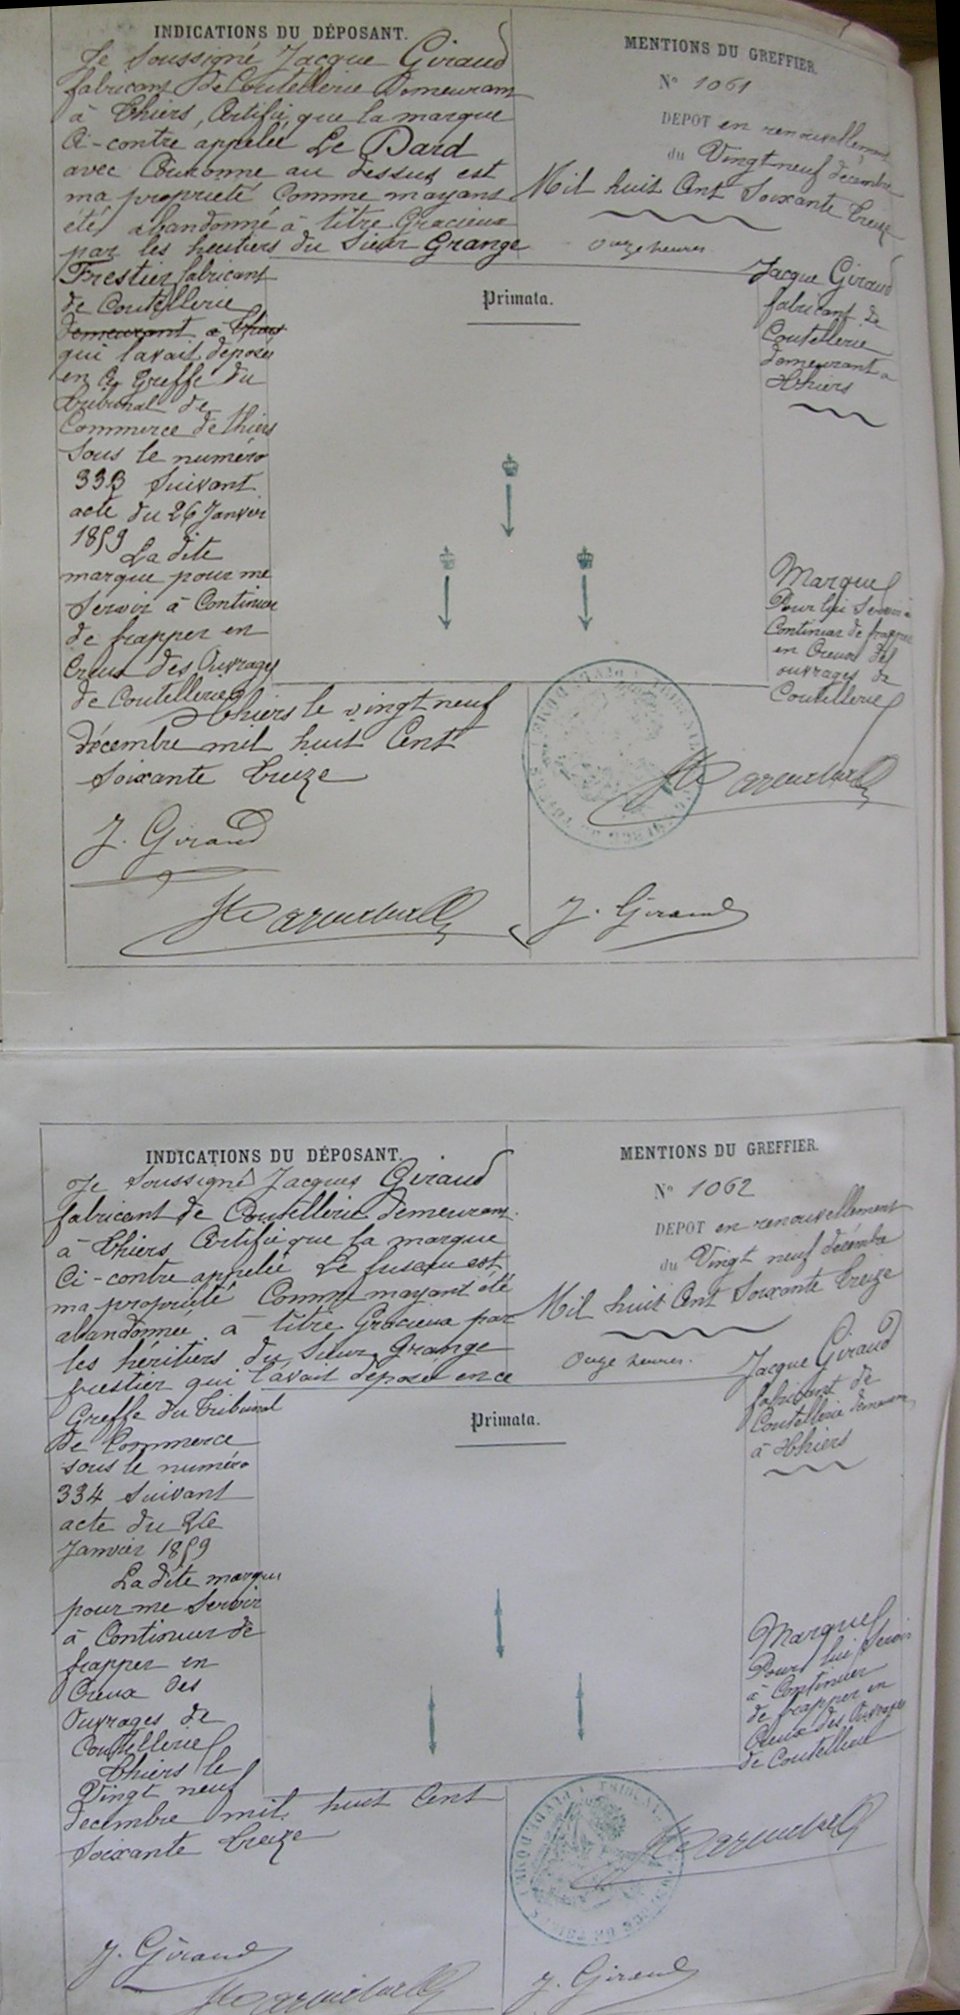 INDICATIONS DU DÉPOSANT.
Je Soussigné Jacque Giraud
fabricant De Coutellerie Demeurant
à Thiers, Certifie que la marque
Ci-contre appelée Le Dard
avec Couronne au dessus est
ma propriété Comme mayant
été abandonné à titre Gracieux
par les heritiers du Sieur Grange
Frestier fabricant
de Coutellerie
demeurant a Thiers
qui l'avait deposée
en Ce Greffe du
tribunal de
Commerce de thiers
Sous le numéro
333 Suivant
acte du 26 Janvier
1859
La dite
marque pour me
Servir à Continuer
de frapper en
Creux des Ouvrages
de Coutellerie
Thiers le vingt neuf
décembre mil huit Cent
Soixante treize
J. Giraud
MENTIONS DU GREFFIER.
N° 1061
DEPOT en renouvellement
du Vingt neuf décembre
Mil huit Cent Soixante treize
Onze heures
Primata.
Jacque Giraud
fabricant de
Coutellerie
demeurant a
Thiers
Marque
Pour lui Servir à
Continuer de frapper
en Creux des
ouvrages de
Coutellerie
J. Giraud
INDICATIONS DU DÉPOSANT.
Je Soussigné Jacques Giraud
fabricant de Coutellerie demeurant
à Thiers Certifie que la marque
Ci-contre appelée Le fuseau est
ma propriété Comme mayant été
abandonnée à titre Gracieux par
les héritiers du Sieur Grange
frestier qui l'avait déposée en ce
Greffe du Tribunal
de Commerce
sous le numéro
334 Suivant
acte du 26
Janvier 1859
La dite marque
pour me Servir
à Continuer de
frapper en
Creux des
Ouvrages de
Coutellerie
Thiers le
Vingt neuf
decembre mil huit Cent
Soixante treize
J. Giraud
MENTIONS DU GREFFIER.
N° 1062
DEPOT en renouvellement
du Vingt neuf décembre
Mil huit Cent Soixante treize
Onze heures.
Primata.
Jacque Giraud
fabricant de
Coutellerie demeurant
à Thiers
Marque
Pour lui Servir
à Continuer
de frapper en
Creux des Ouvrages
de Coutellerie
J. Giraud